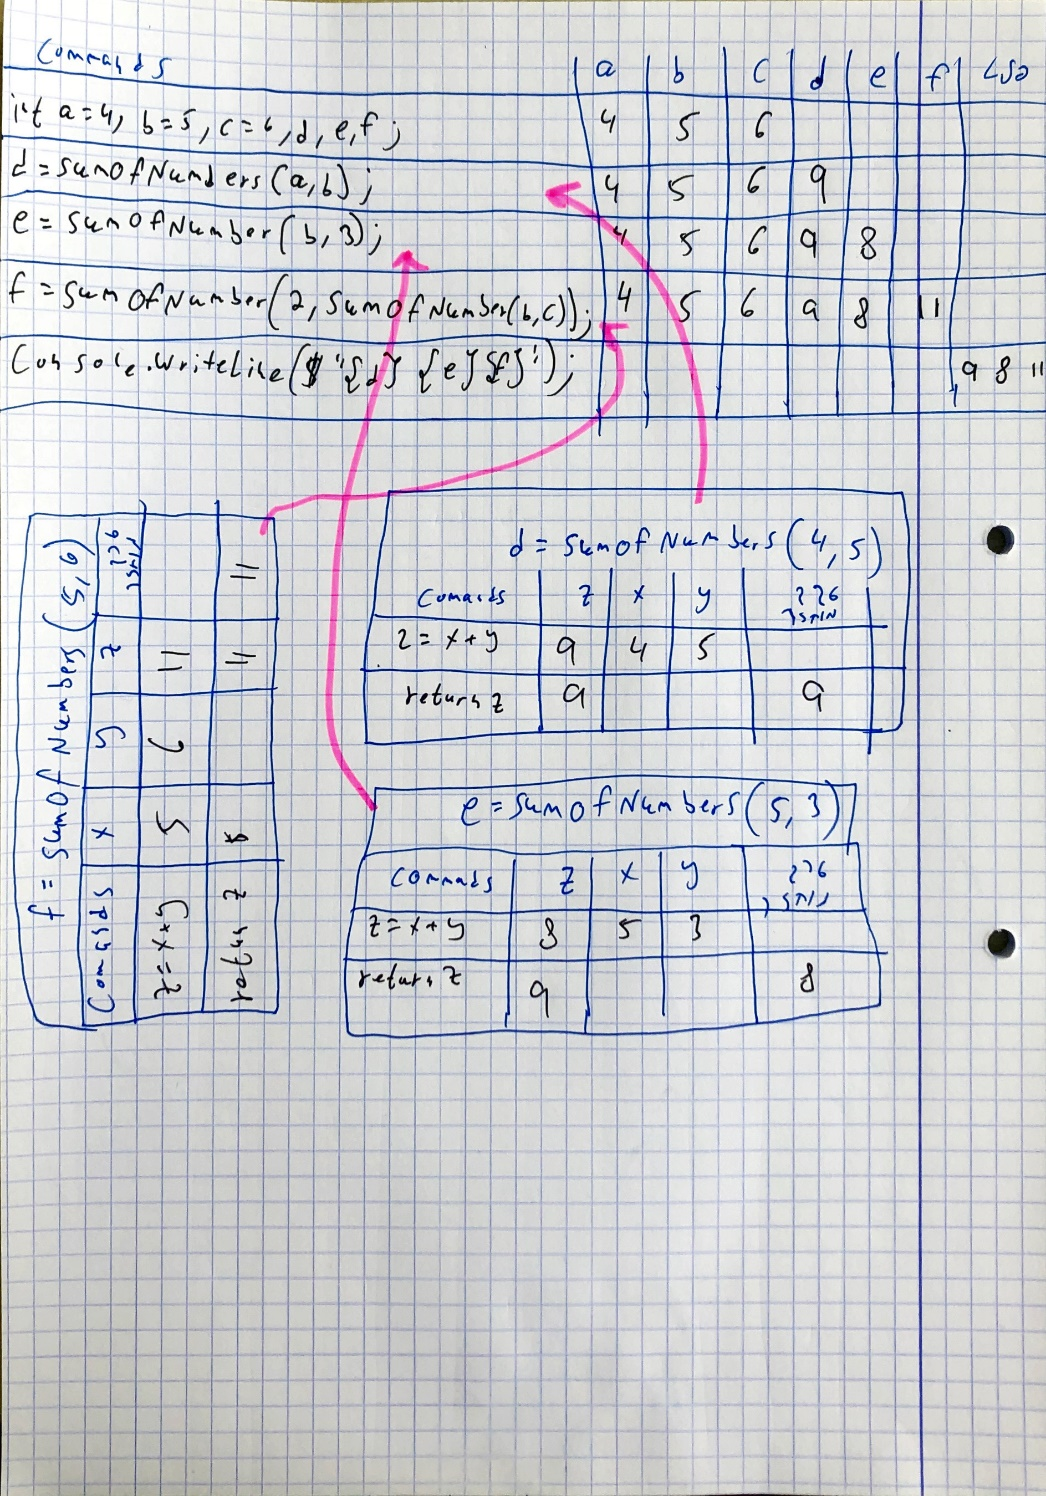 Commands a b c d e f פלט
int a=4, b=5, c=6, d, e, f; 4 5 6
d = sumOfNumbers(a,b); 4 5 6 9
e = sumOfNumber(b,3); 4 5 6 9 8
f = sumOfNumber(2, sumOfNumber(b,c)); 4 5 6 9 8 11
Console.WriteLine($"{d} {e} {f}"); 9 8 11
d = sumOf Numbers(4,5)
Comands z x y ערך מוחזר
z = x+y 9 4 5
return z 9 9
e = sumOf Numbers(5,3)
Commads z x y ערך מוחזר
z = x+y 8 5 3
return z 9 8
f = sumOf Numbers(5,6)
Comands x y z ערך מוחזר
z = x+y 5 6 11
return z 11 11